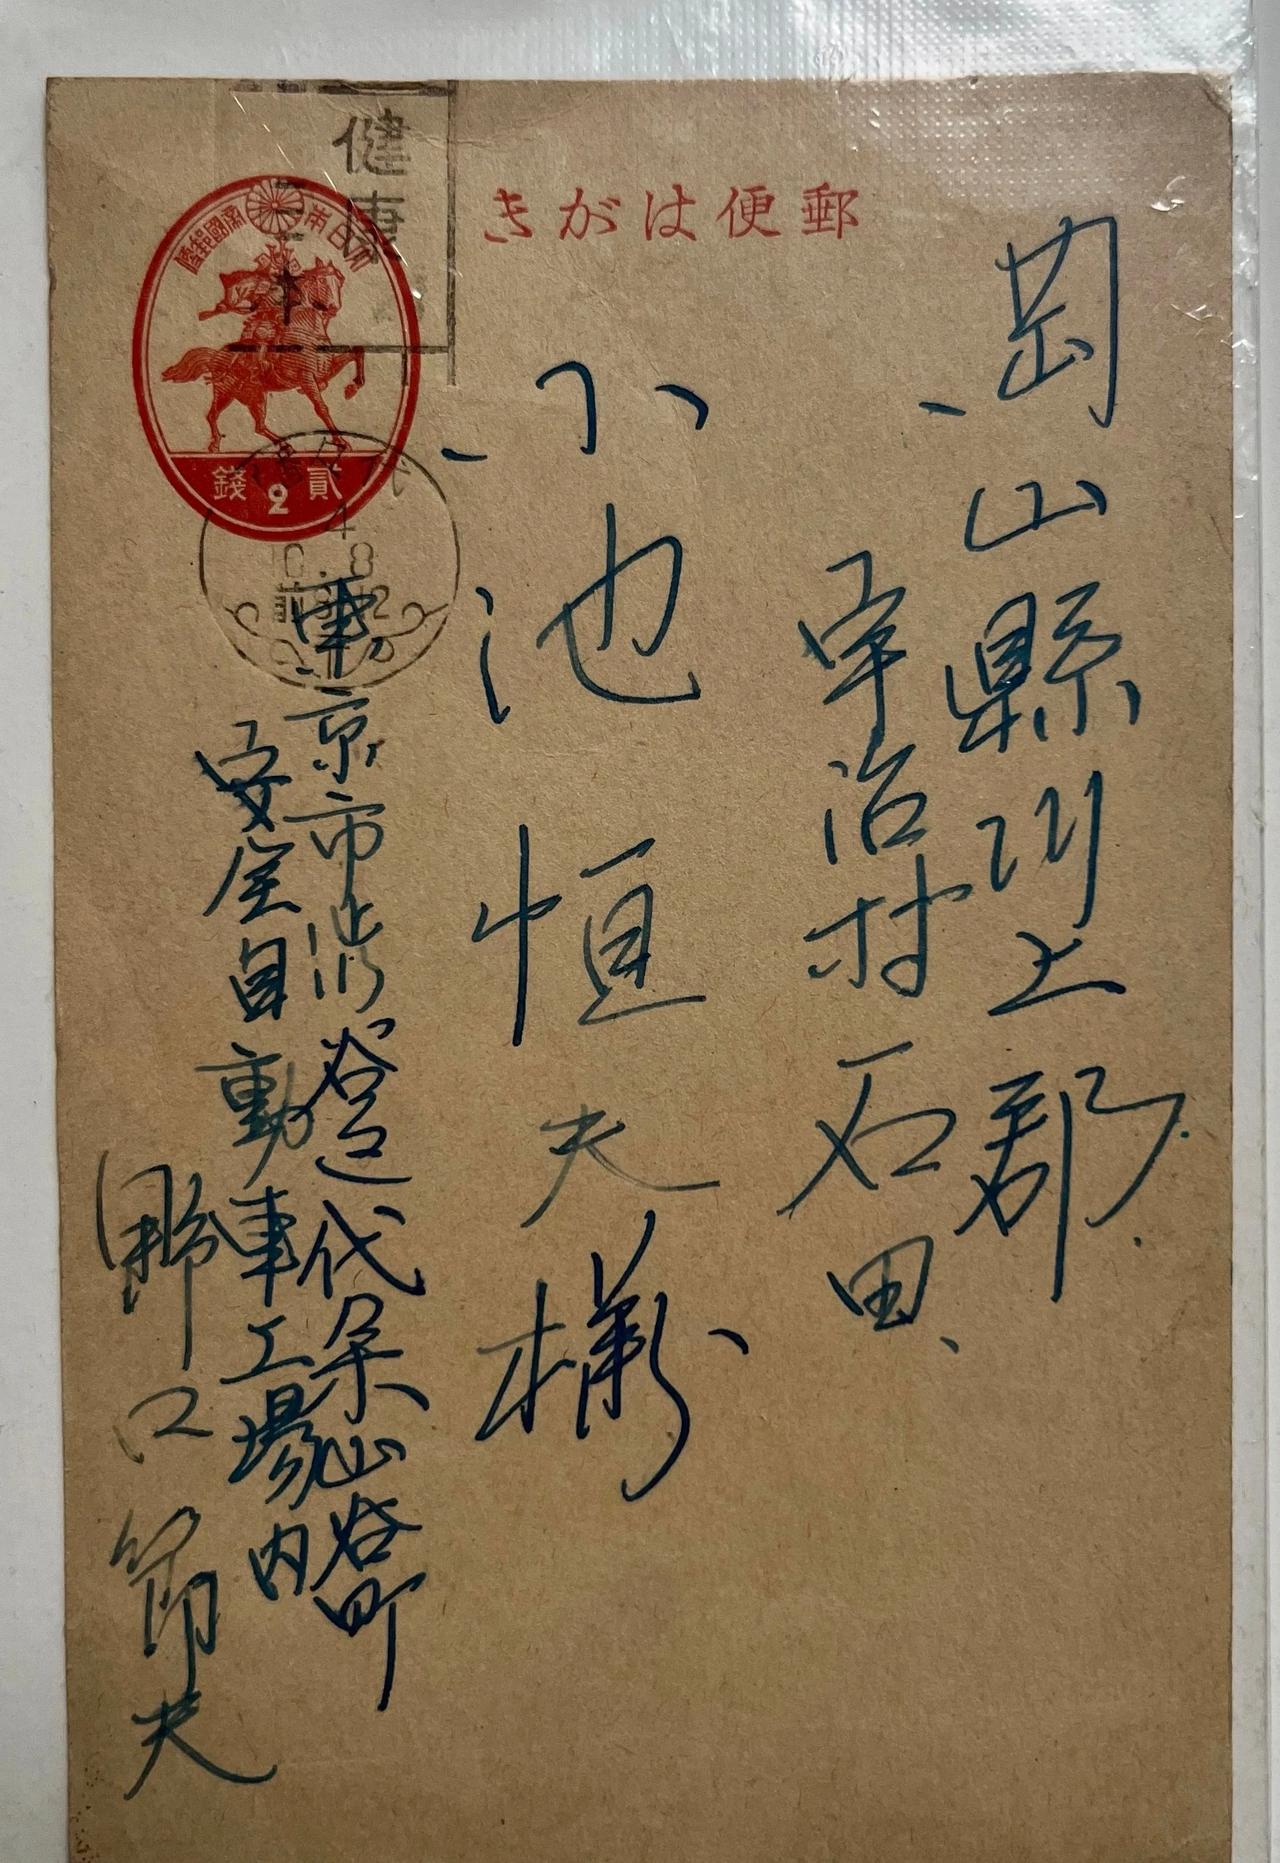 郵便はがき
岡山縣川上郡
宇治村石田
小池恒夫様
東京市渋谷区代々木山谷町
安全自動車工場内
野口節夫
大日本帝國郵便
貳錢
2
健康
4
10.8
前8-12